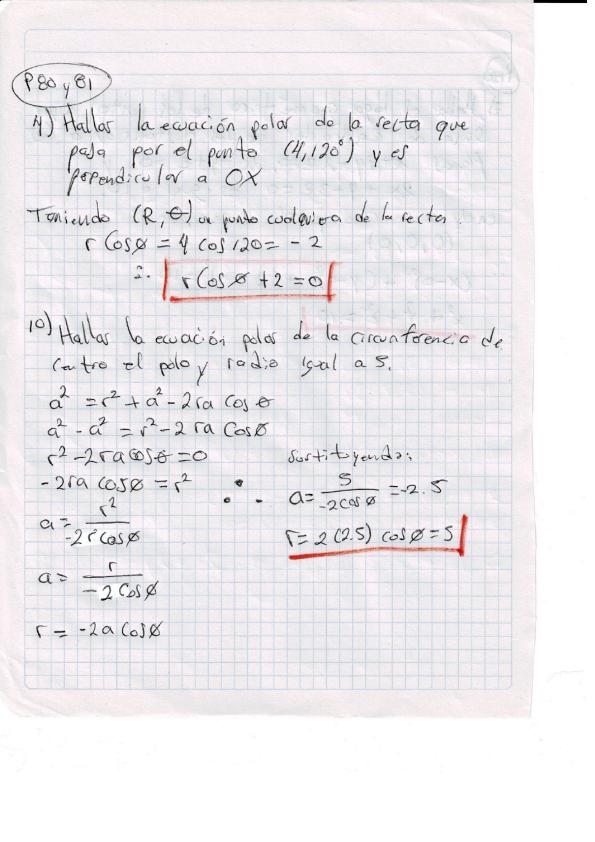 P80 y 81
4) Hallar la ecuación polar de la recta que
pasa por el punto (4,120°) y es
perpendicular a OX
Teniendo (R,θ) un punto cualquiera de la recta.
r Cosθ = 4 cos 120 = - 2
r Cos θ + 2 = 0
10) Hallar la ecuación polar de la circunferencia de
centro el polo y radio igual a 5.
a² = r² + a² - 2ra Cos θ
a² - a² = r² - 2 ra Cosθ
r² - 2ra cosθ = 0
sustituyendo:
-2ra cosθ = r²
∴ a = 5 / -2cosθ = -2.5
a = r² / -2rcosθ
r = 2 (2.5) cosθ = 5
a = r / -2 Cosθ
r = -2a Cosθ